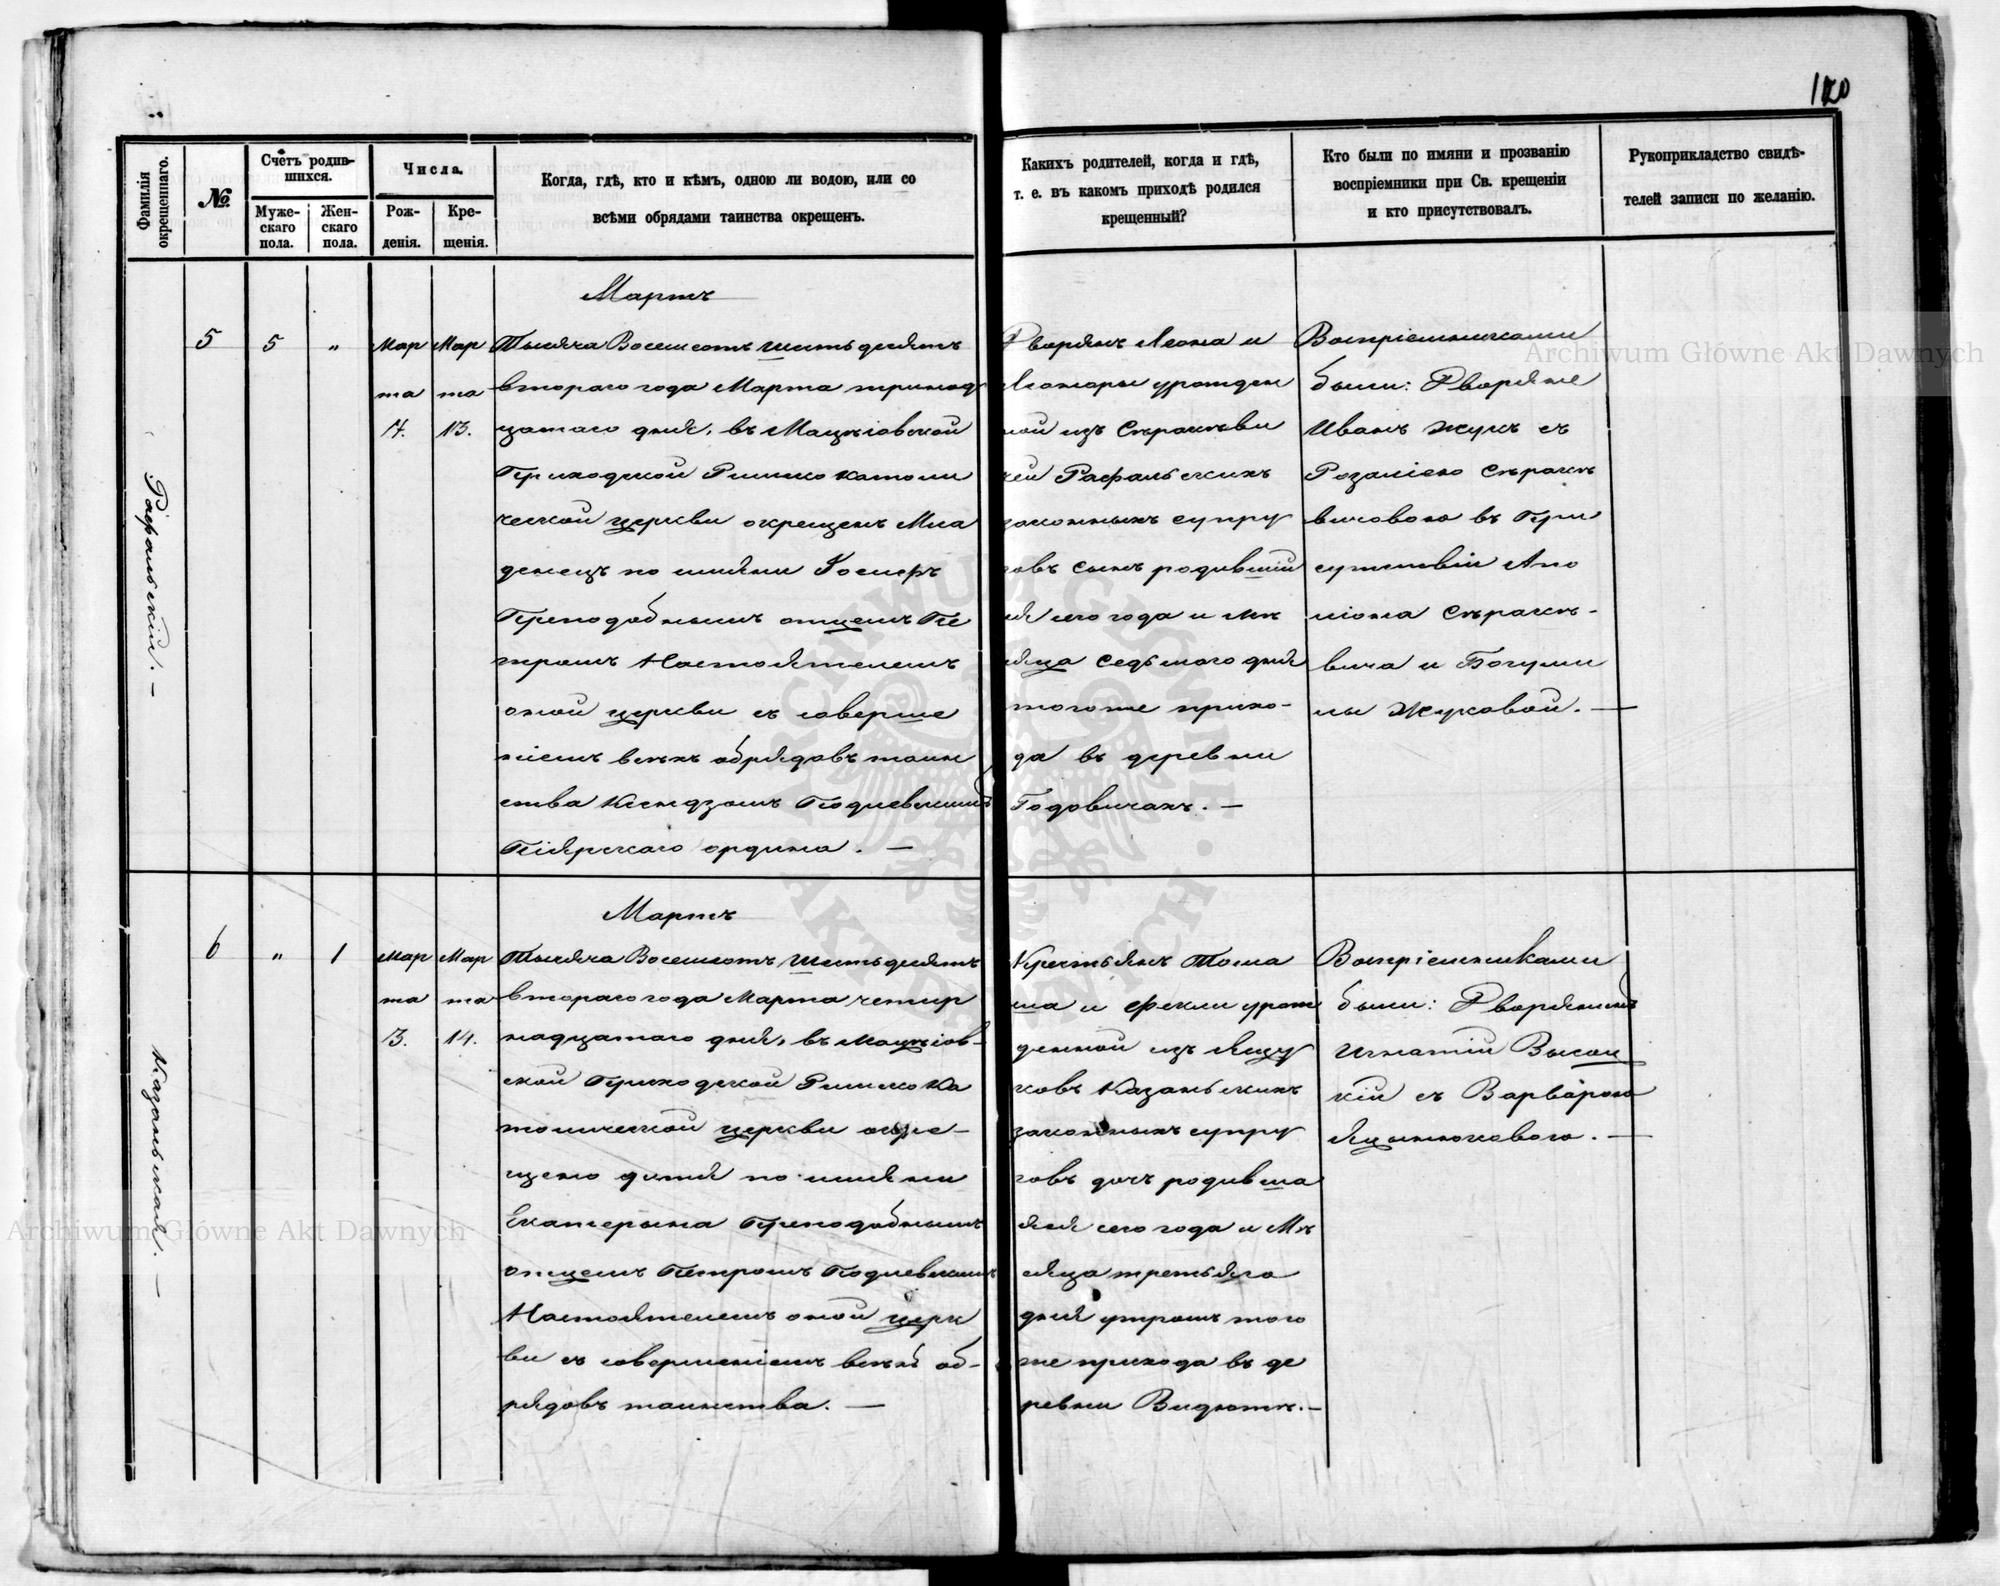 120
Фамилія окрещеннаго.
№.
Счетъ родив-
шихся.
Муже-
скаго
пола.
Жен-
скаго
пола.
Числа.
Рож-
денія.
Кре-
щенія.
Когда, гдѣ, кто и кѣмъ, одною ли водою, или со
всѣми обрядами таинства окрещенъ.
Какихъ родителей, когда и гдѣ,
т. е. въ какомъ приходѣ родился
крещенный?
Кто были по имяни и прозванію
воспріемники при Св. крещеніи
и кто присутствовалъ.
Рукоприкладство свидѣ-
телей записи по желанію.
Рафальскій. —
5
5
"
Мар
та
Мар
та
13.
Мартъ
Тысяча Восемсотъ шестьдесятъ
втораго года Марта тринад
цатаго дня, въ Мацѣіовской
Приходской Римско католи
ческой церкви окрещенъ Мла
денецъ по имяни
Преподобнымъ отцемъ Пе
тромъ Настоятелемъ
оной церкви съ соверше
ніемъ всѣхъ обрядовъ таин
ства Ксендзомъ Подлевскимъ
Піярскаго ордина. —
Дворянъ Леона и
Леоноры урожден
ной изъ Сѣракѣви
чей Рафальскихъ
законныхъ супру
говъ сынъ родивший
ся сего года и мѣ
сяца седьмаго дня
тогоже прихо-
да въ деревни
Годовичахъ. —
Воспріемниками
были: Дворяне
Иванъ Жукъ съ
Розаліею Сѣракѣ
вичовою въ При
сутствіи Апо
ліона Сѣракѣ-
вича и Богуми
лы Жуковой. —
Казаньская. —
6
"
1
Мар
та
13.
Мар
та
14.
Мартъ
Тысяча Восемсотъ Шестьдесятъ
втораго года Марта четыр
надцатаго дня, въ Мацѣіов-
ской Приходской Римско Ка
толической церкви окре-
щено дитя по имяни
Екатерына Преподобнымъ
отцемъ Петромъ Подлевскимъ
Настоятелемъ оной церк
ви съ совершеніемъ всѣхъ об-
рядовъ таинства. —
Крестьянъ Тома
ша и Феклы урож
денной изъ Яцу
ковъ Казаньскихъ
законныхъ супру
говъ дочъ родивша
яся сего года и Мѣ
сяца третьяго
дня утромъ того
же прихода въ де
ревни Видютѣ. —
Воспріемниками
были: Дворянинъ
Игнатій Высоц
кій съ Варварою
Яцынюковою. —
Archiwum Główne Akt Dawnych
Archiwum Główne Akt Dawnych
ARCHIWUM GŁÓWNE AKT DAWNYCH